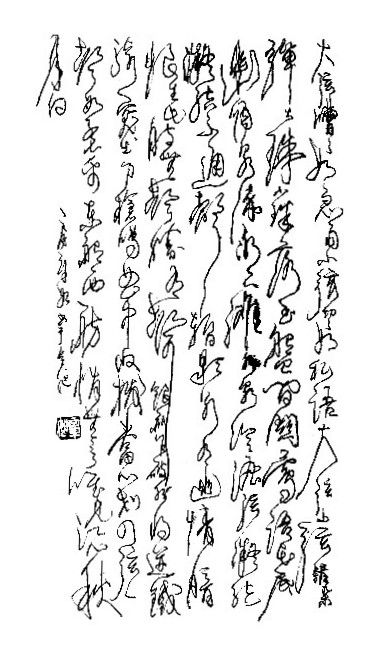 大弦嘈嘈如急雨小弦切切如私語
彈大珠小珠落玉盤間關鶯語花底
滑幽咽泉流冰下難冰泉冷澀弦凝絕
凝絕不通聲暫歇別有幽情暗
恨生此時無聲勝有聲銀瓶乍破水漿迸鐵
騎突出刀槍鳴曲中收撥當心劃四弦一
聲如裂帛東船西舫悄無言唯見江心秋
月白